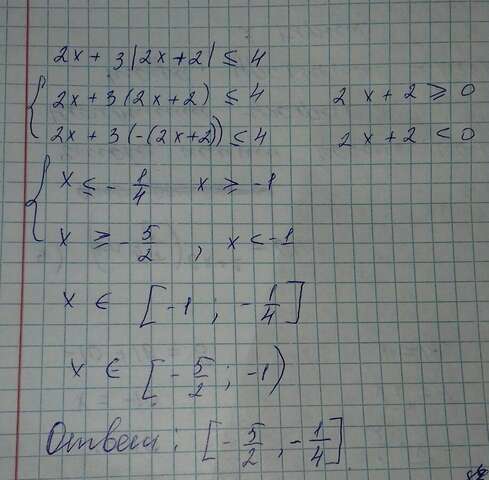 2x + 3|2x + 2| ≤ 4
2x + 3(2x + 2) ≤ 4 2x + 2 ≥ 0
2x + 3(-(2x + 2)) ≤ 4 2x + 2 < 0
x ≤ - 1/4 x ≥ -1
x ≥ - 5/2 , x < -1
x ∈ [-1 ; - 1/4]
x ∈ [- 5/2 ; -1)
Ответ : [- 5/2 , - 1/4]